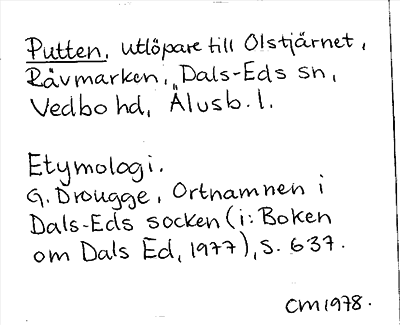 Putten, utlöpare till Olstjärnet,
Råvmarken, Dals-Eds sn,
Vedbo hd, Älvsb. l.
Etymologi.
G. Drougge, Ortnamnen i
Dals-Eds socken (i: Boken
om Dals Ed, 1977), s. 637.
CM 1978.